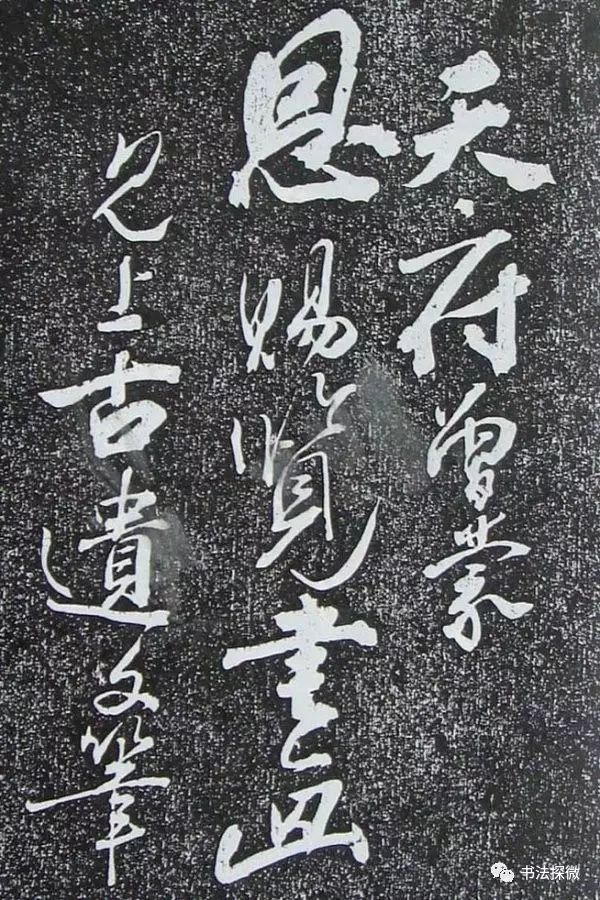 天府曾蒙
恩賜覽書且
見上古遺文筆
书法探微